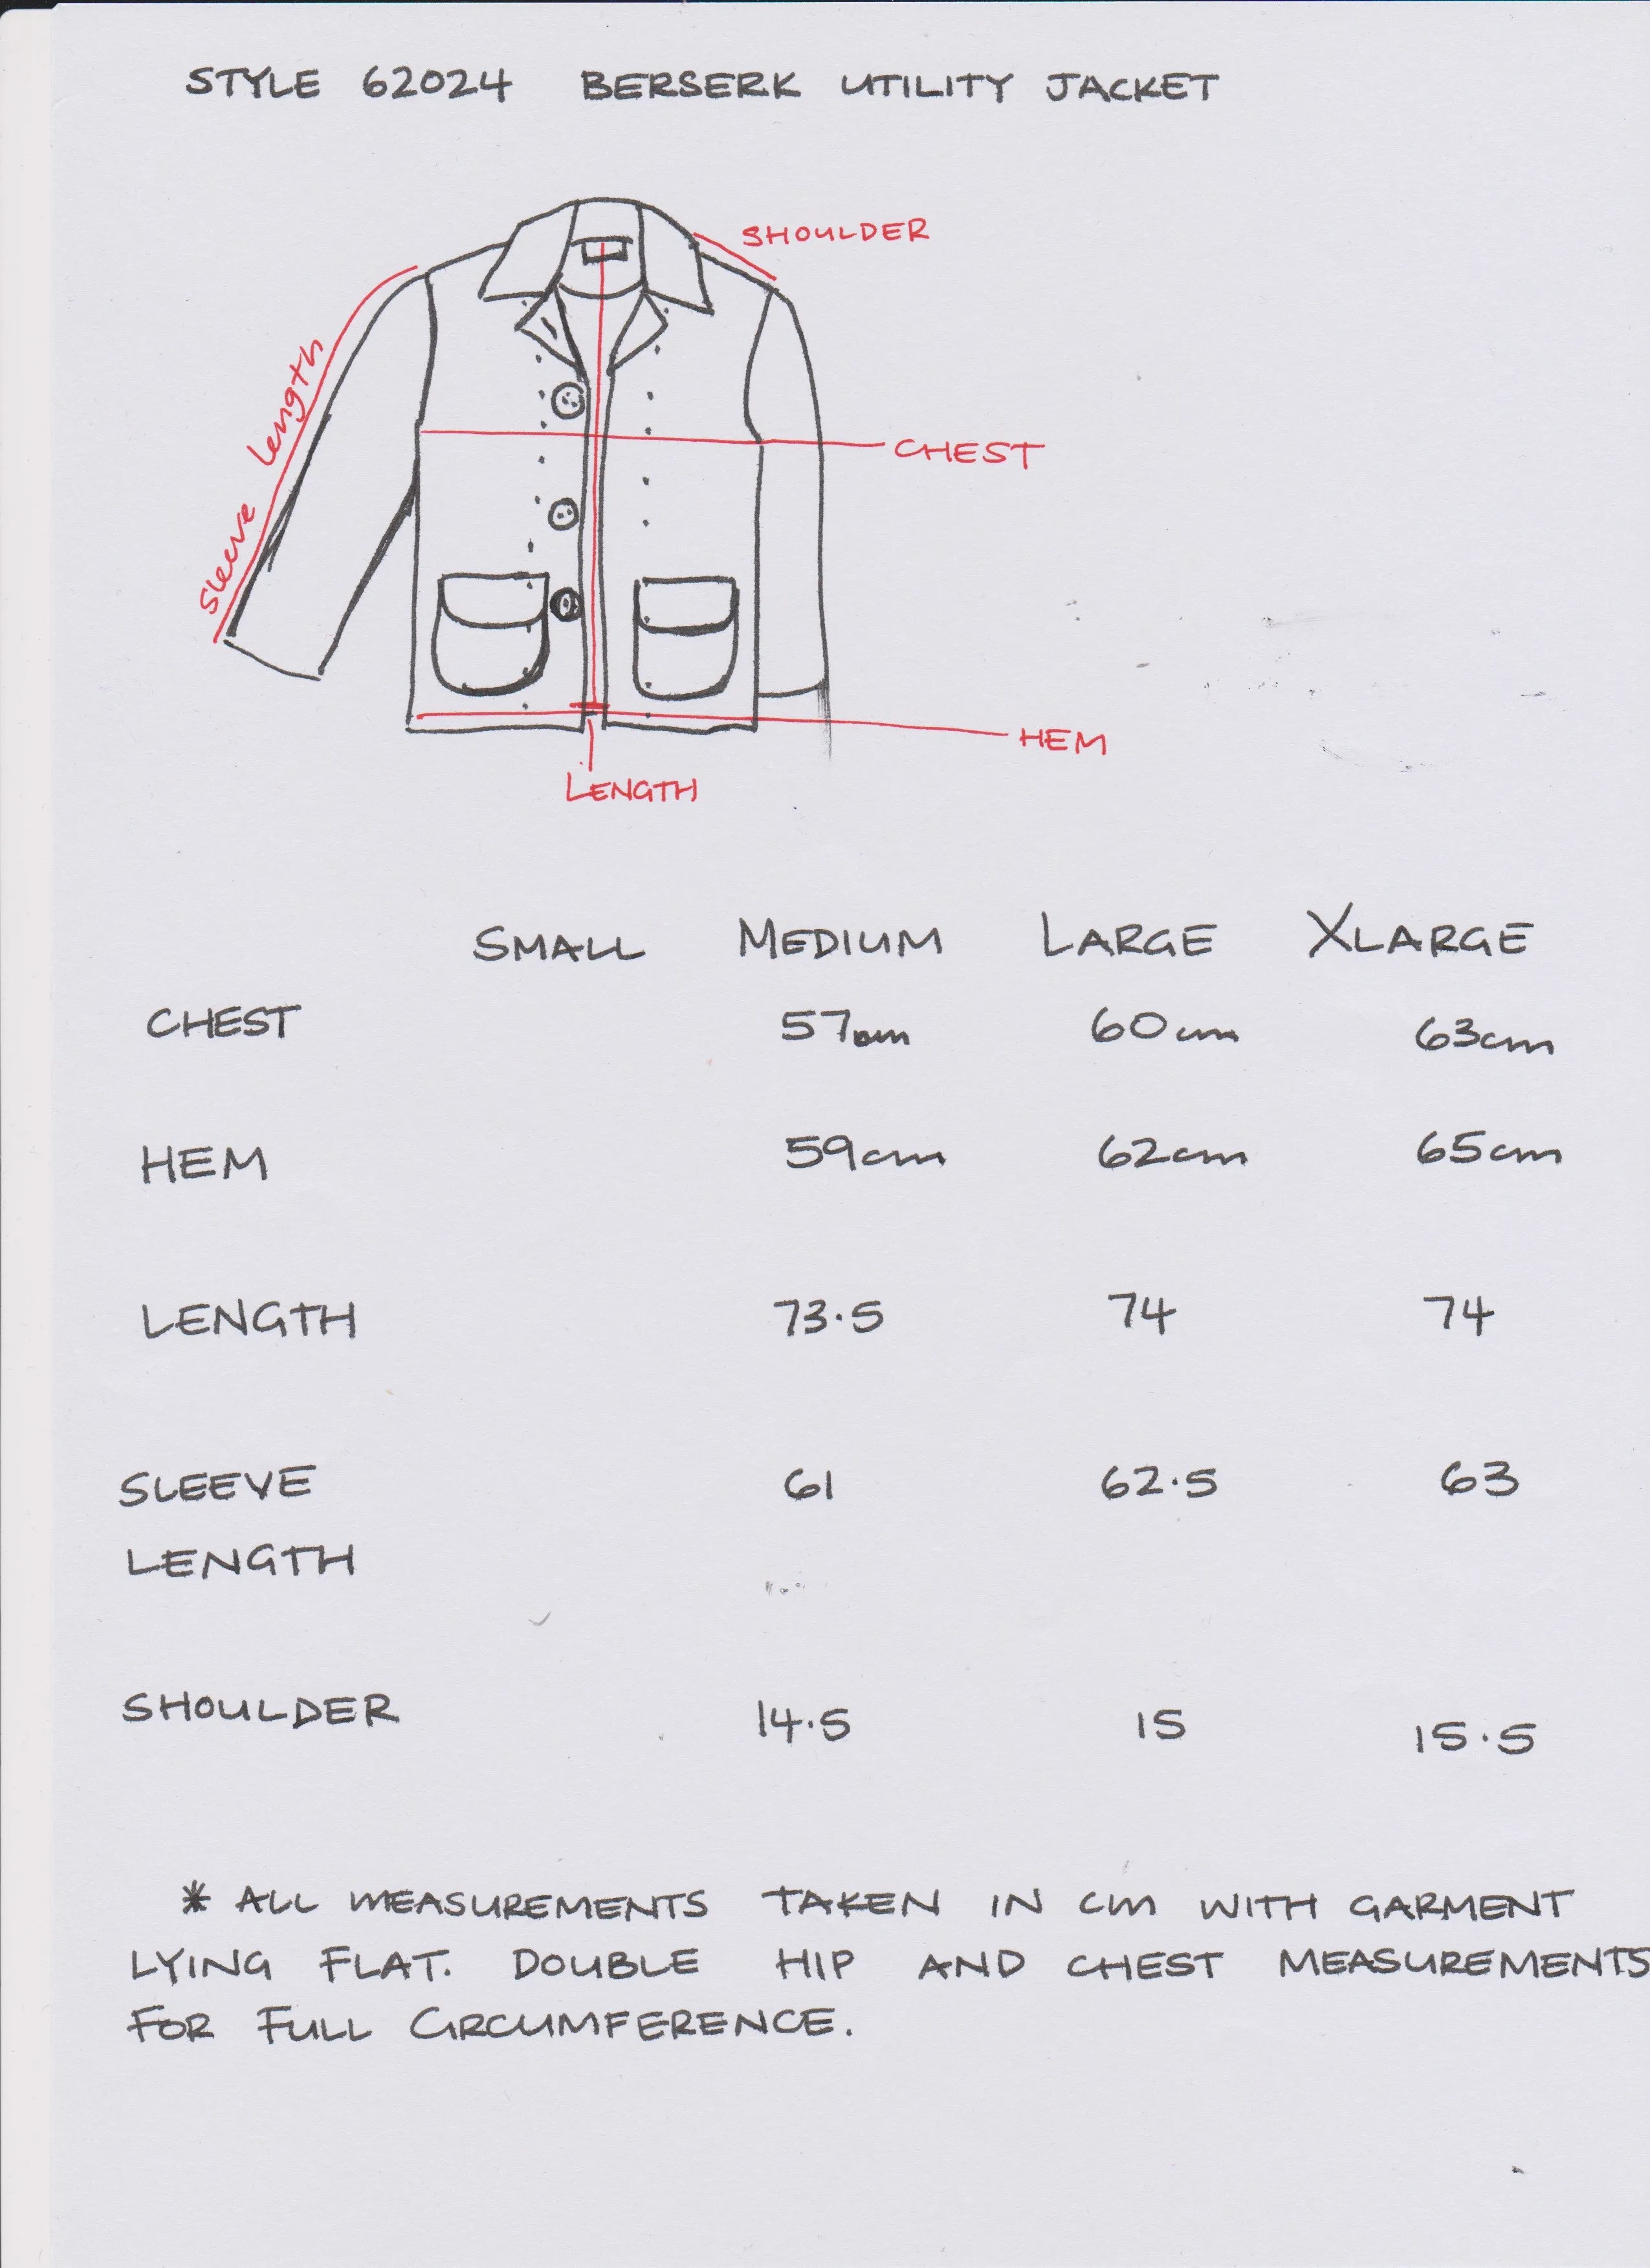 STYLE 62024 BERSERK UTILITY JACKET
SHOULDER
Sleeve Length
CHEST
HEM
LENGTH
SMALL MEDIUM LARGE XLARGE
CHEST 57cm 60cm 63cm
HEM 59cm 62cm 65cm
LENGTH 73.5 74 74
SLEEVE 61 62.5 63
LENGTH
SHOULDER 14.5 15 15.5
* ALL MEASUREMENTS TAKEN IN cm WITH GARMENT
LYING FLAT. DOUBLE HIP AND CHEST MEASUREMENTS
FOR FULL CIRCUMFERENCE.